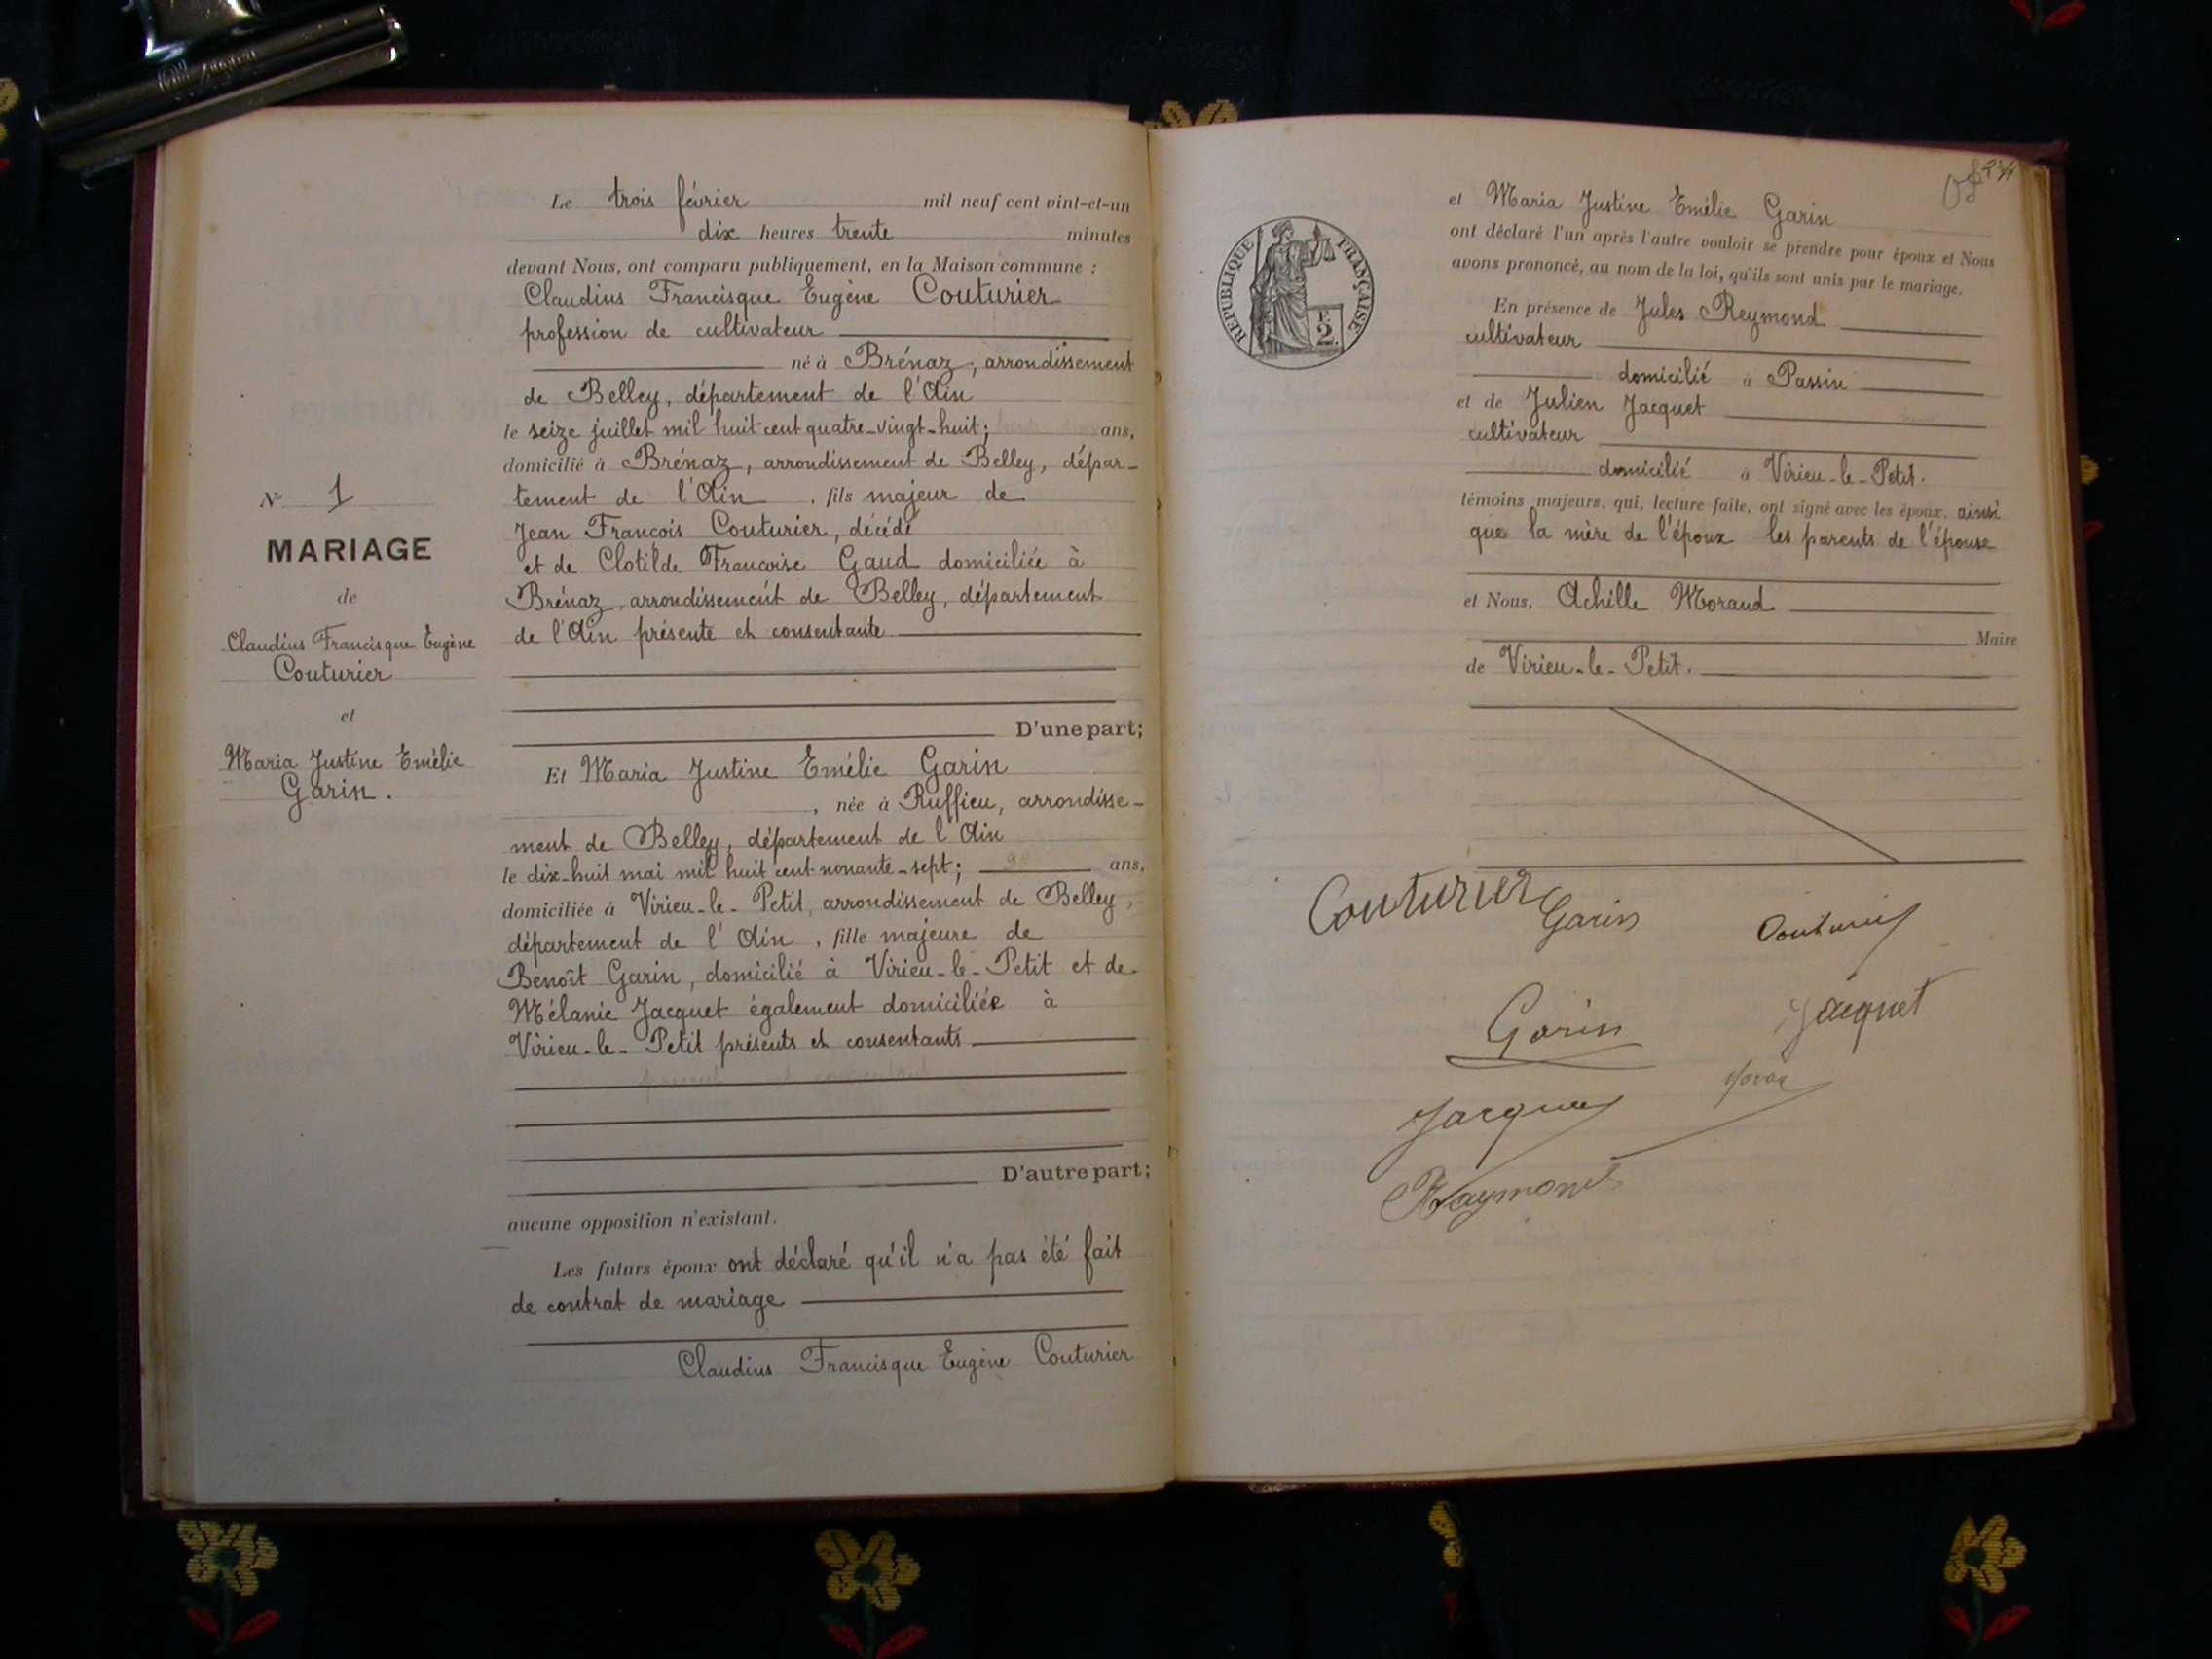 N° 1
MARIAGE
de
Claudius Francisque Eugène
Couturier
et
Maria Justine Emélie
Garin.
Le trois février mil neuf cent vint-et-un
dix heures trente minutes
devant Nous, ont comparu publiquement, en la Maison commune :
Claudius Francisque Eugène Couturier
profession de cultivateur
né à Brénaz, arrondissement
de Belley, département de l'Ain
le seize juillet mil huit cent quatre-vingt-huit; ans,
domicilié à Brénaz, arrondissement de Belley, dépar-
tement de l'Ain, fils majeur de
Jean François Couturier, décédé
et de Clotilde Françoise Gaud domiciliée à
Brénaz, arrondissement de Belley, département
de l'Ain présente et consentante
D'une part;
Et Maria Justine Emélie Garin
, née à Ruffieu, arrondisse-
ment de Belley, département de l'Ain
le dix-huit mai mil huit cent nonante-sept; ans,
domiciliée à Virieu-le-Petit, arrondissement de Belley,
département de l'Ain, fille majeure de
Benoît Garin, domicilié à Virieu-le-Petit et de
Mélanie Jacquet également domiciliée à
Virieu-le-Petit présents et consentants
D'autre part;
aucune opposition n'existant.
Les futurs époux ont déclaré qu'il n'a pas été fait
de contrat de mariage
Claudius Francisque Eugène Couturier
RÉPUBLIQUE FRANÇAISE
F.
2.
et Maria Justine Emélie Garin
ont déclaré l'un après l'autre vouloir se prendre pour époux et Nous
avons prononcé, au nom de la loi, qu'ils sont unis par le mariage.
En présence de Jules Reymond
cultivateur
domicilié à Passin
et de Julien Jacquet
cultivateur
domicilié à Virieu-le-Petit.
témoins majeurs, qui, lecture faite, ont signé avec les époux, ainsi
que la mère de l'époux les parents de l'épouse
et Nous, Achille Morand
Maire
de Virieu-le-Petit.
Couturier
Garin
Couturier
Garin
Jacquet
Jacquet
Raymond